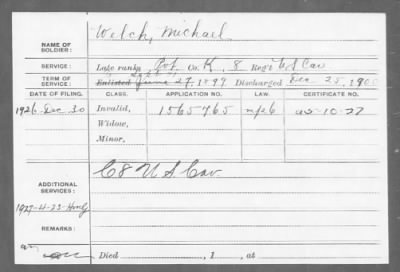 NAME OF SOLDIER: Welch, Michael
SERVICE: Late rank, Pvt Co. K, 8 Reg't U S Cav
TERM OF SERVICE: Enlisted 27, 1899 Discharged Dec 25, 1900
DATE OF FILING. CLASS. APPLICATION NO. LAW. CERTIFICATE NO.
1926 Dec 30 Invalid, 1565765
Widow,
Minor,
ADDITIONAL SERVICES: C 8 U S Cav
1927-4-23-
REMARKS:
Died , 1 , at